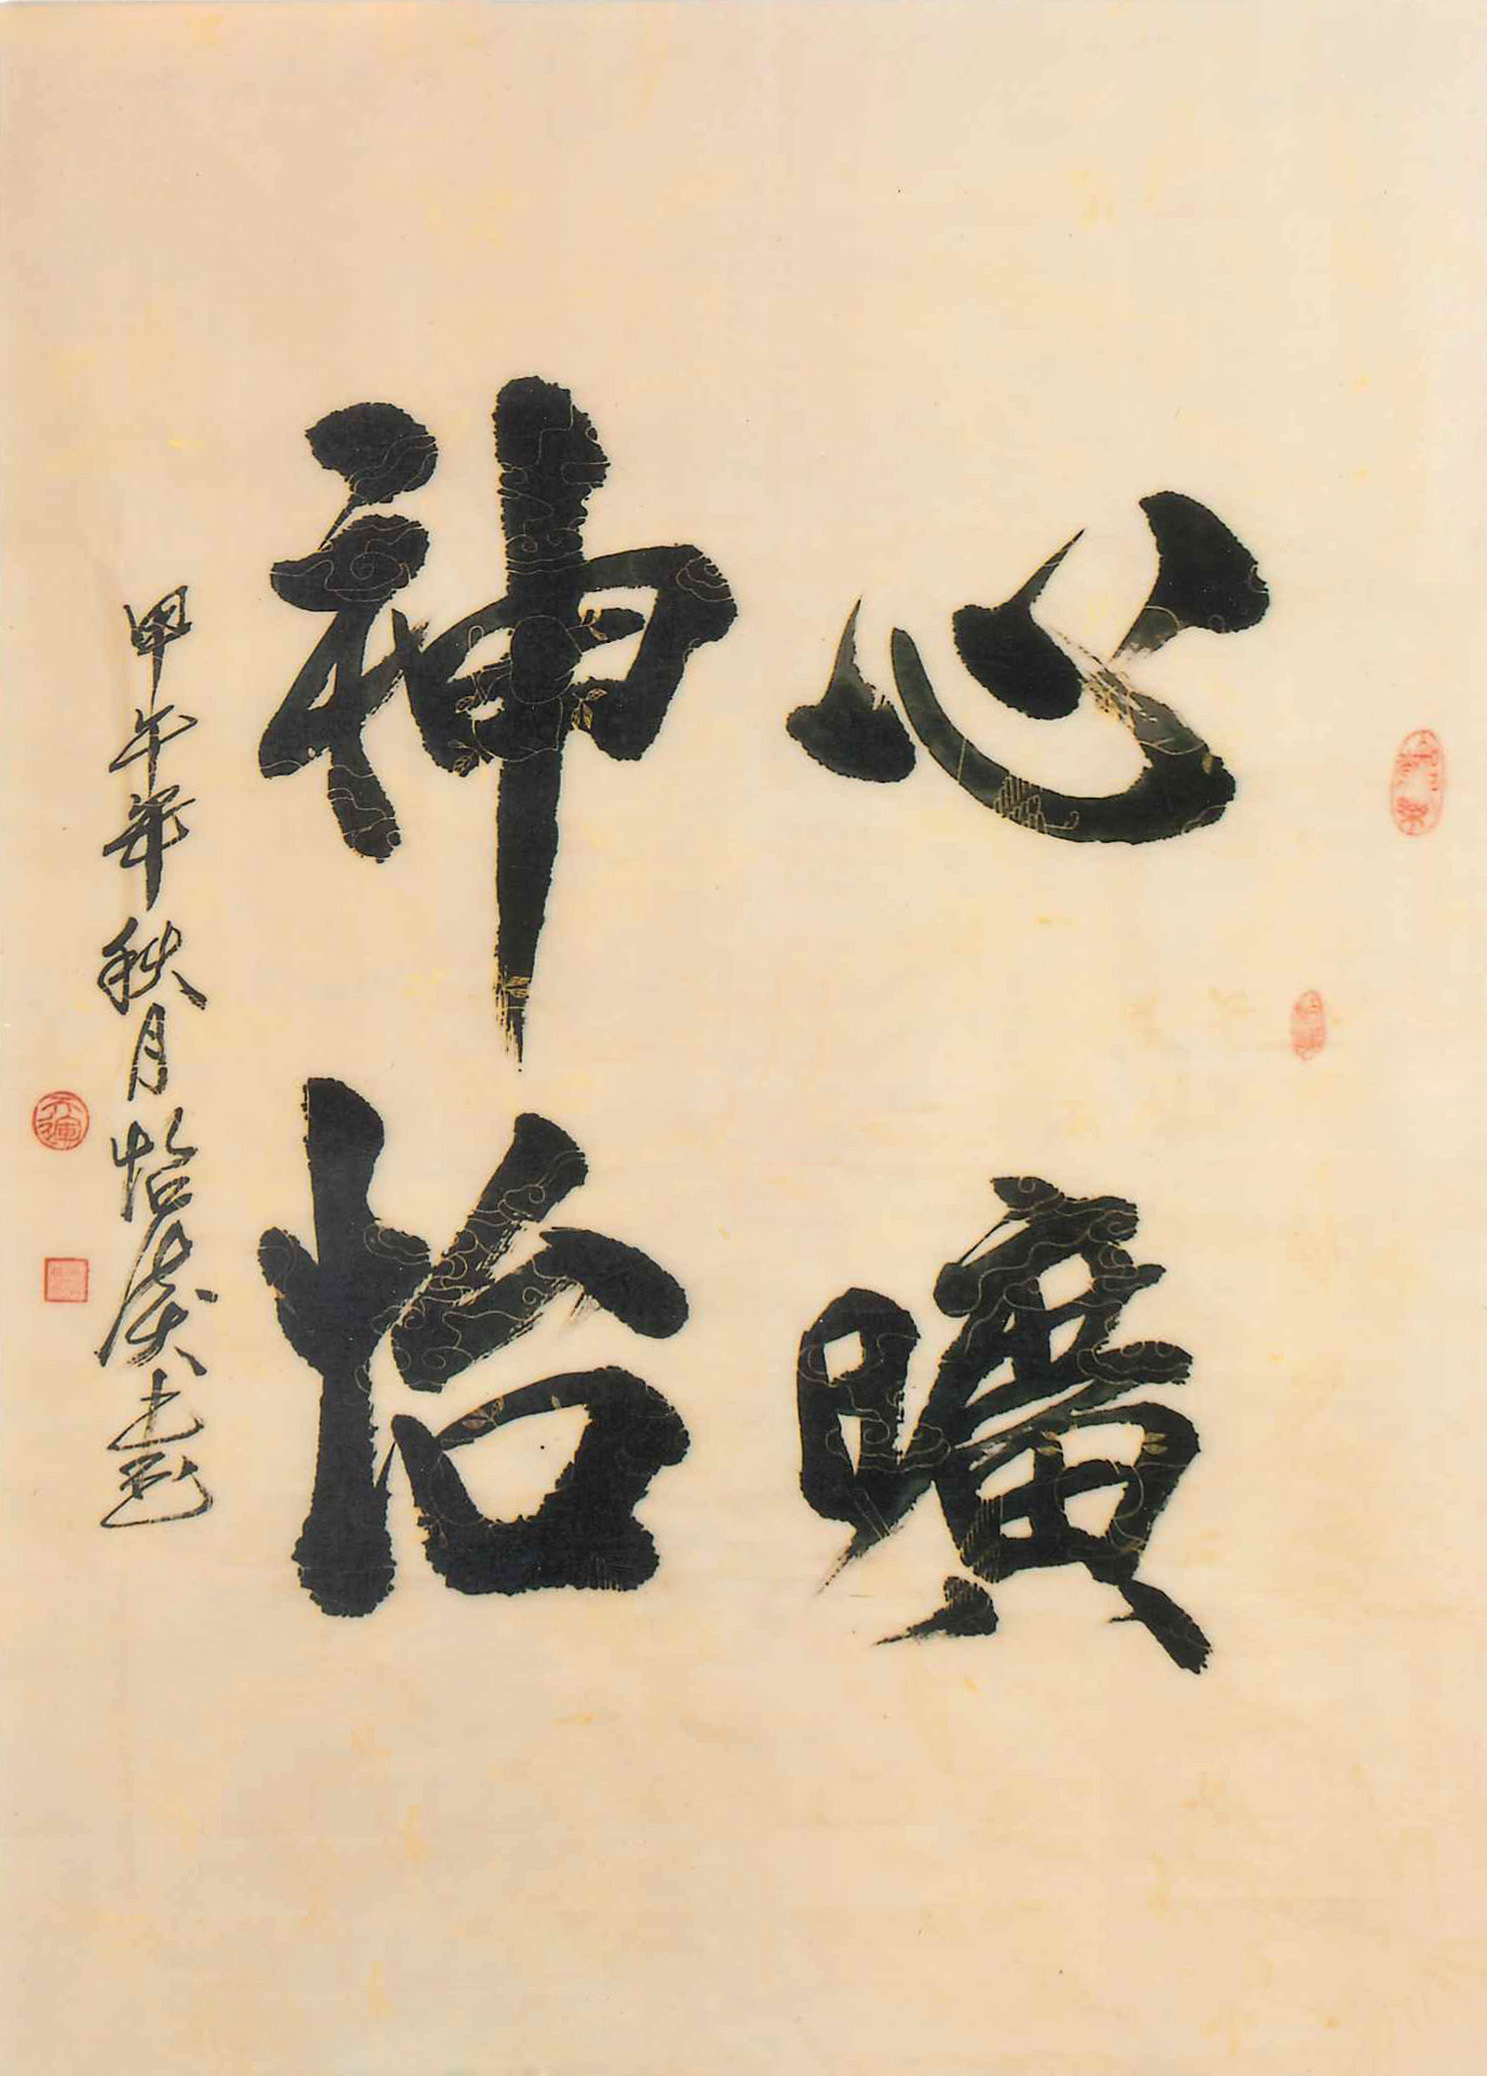 心曠
神怡
甲午年秋月怡